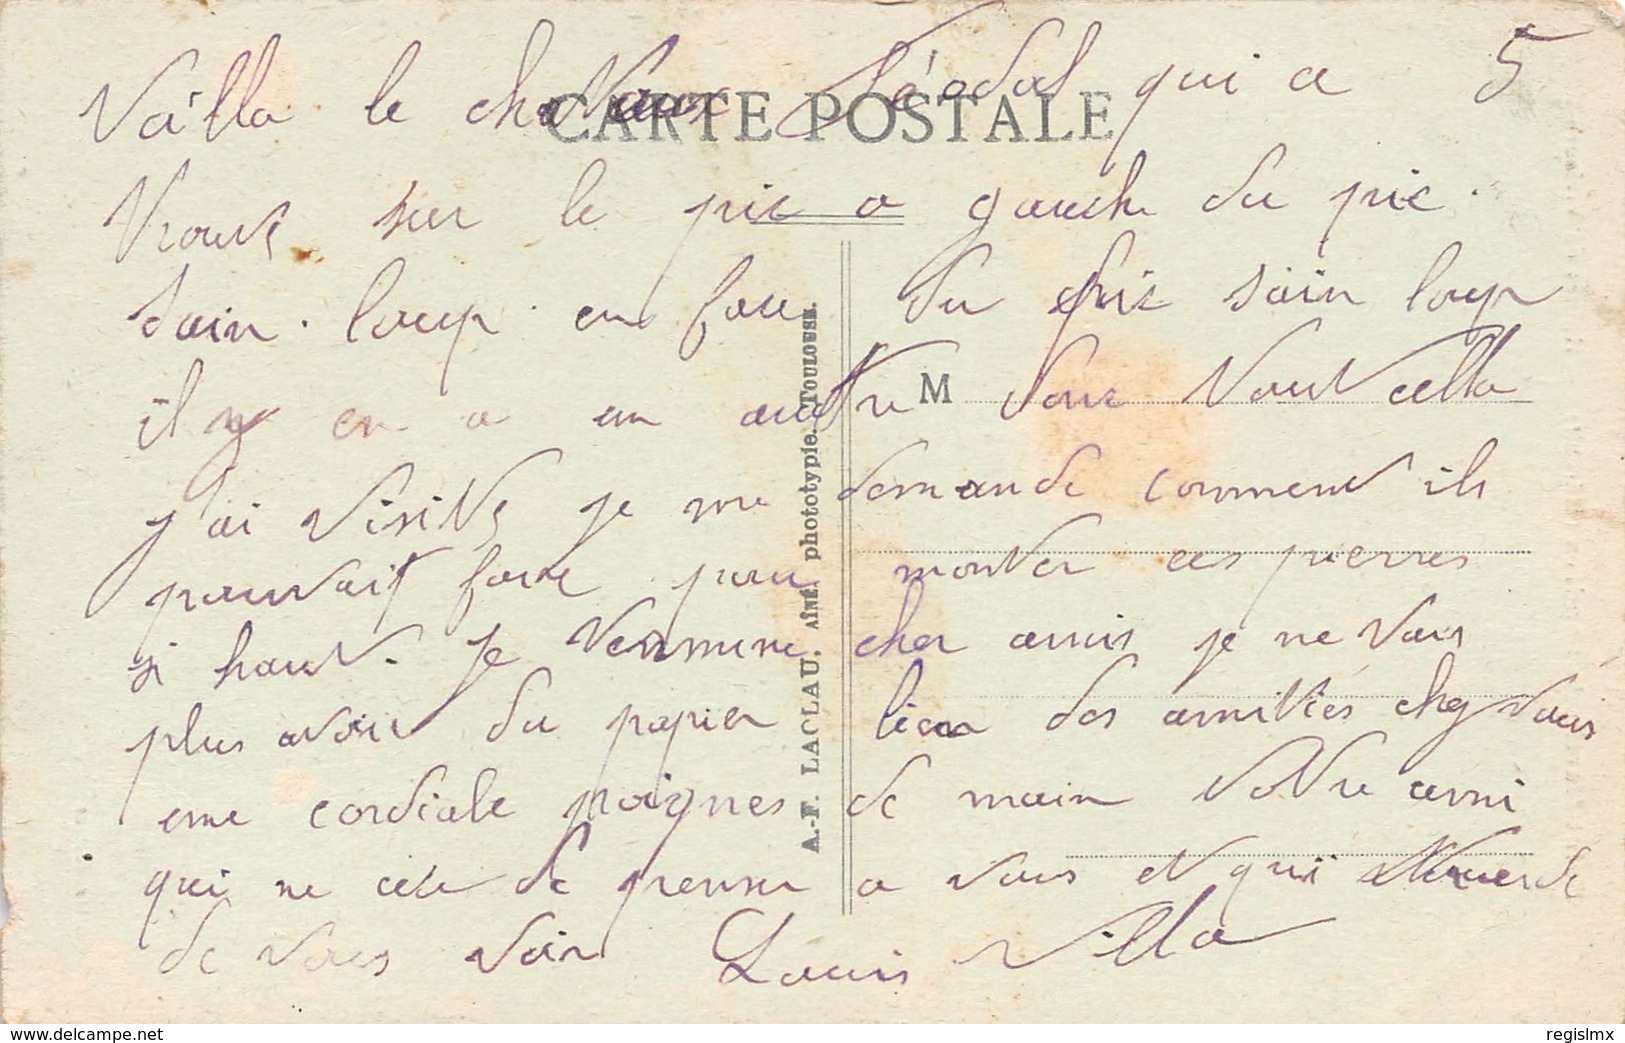 Voilla le chataux féodal qui a 5
CARTE POSTALE
trouve sur le pic a gauche du pic
sain. loup. en face du pic sain loup
il y en a un autre dont tout cella
M
j'ai visite je me demande comment ils
pouvait faire pour monter ces pierres
si haut. je termine cher amis je ne vais
plus avoir du papier bien des amitiés chez vous
une cordiale poignes de main votre ami
qui ne cese de penser a vous et qui
de vous voir Louis Villa
A.-F. LACLAU, AÎNÉ, phototypie. TOULOUSE.
www.delcampe.net
regislmx